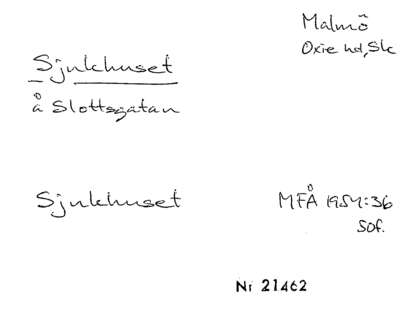 Malmö
Oxie hd, Sk
Sjukhuset
å Slottsgatan
Sjukhuset
MFÅ 1954:36
Sof.
Nr 21462